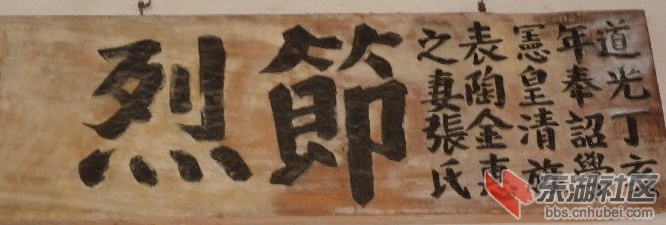 道光丁亥
年奉詔學
憲皇清旌
表陶金
之妻張氏
節烈
东湖社区
bbs.cnhubei.com